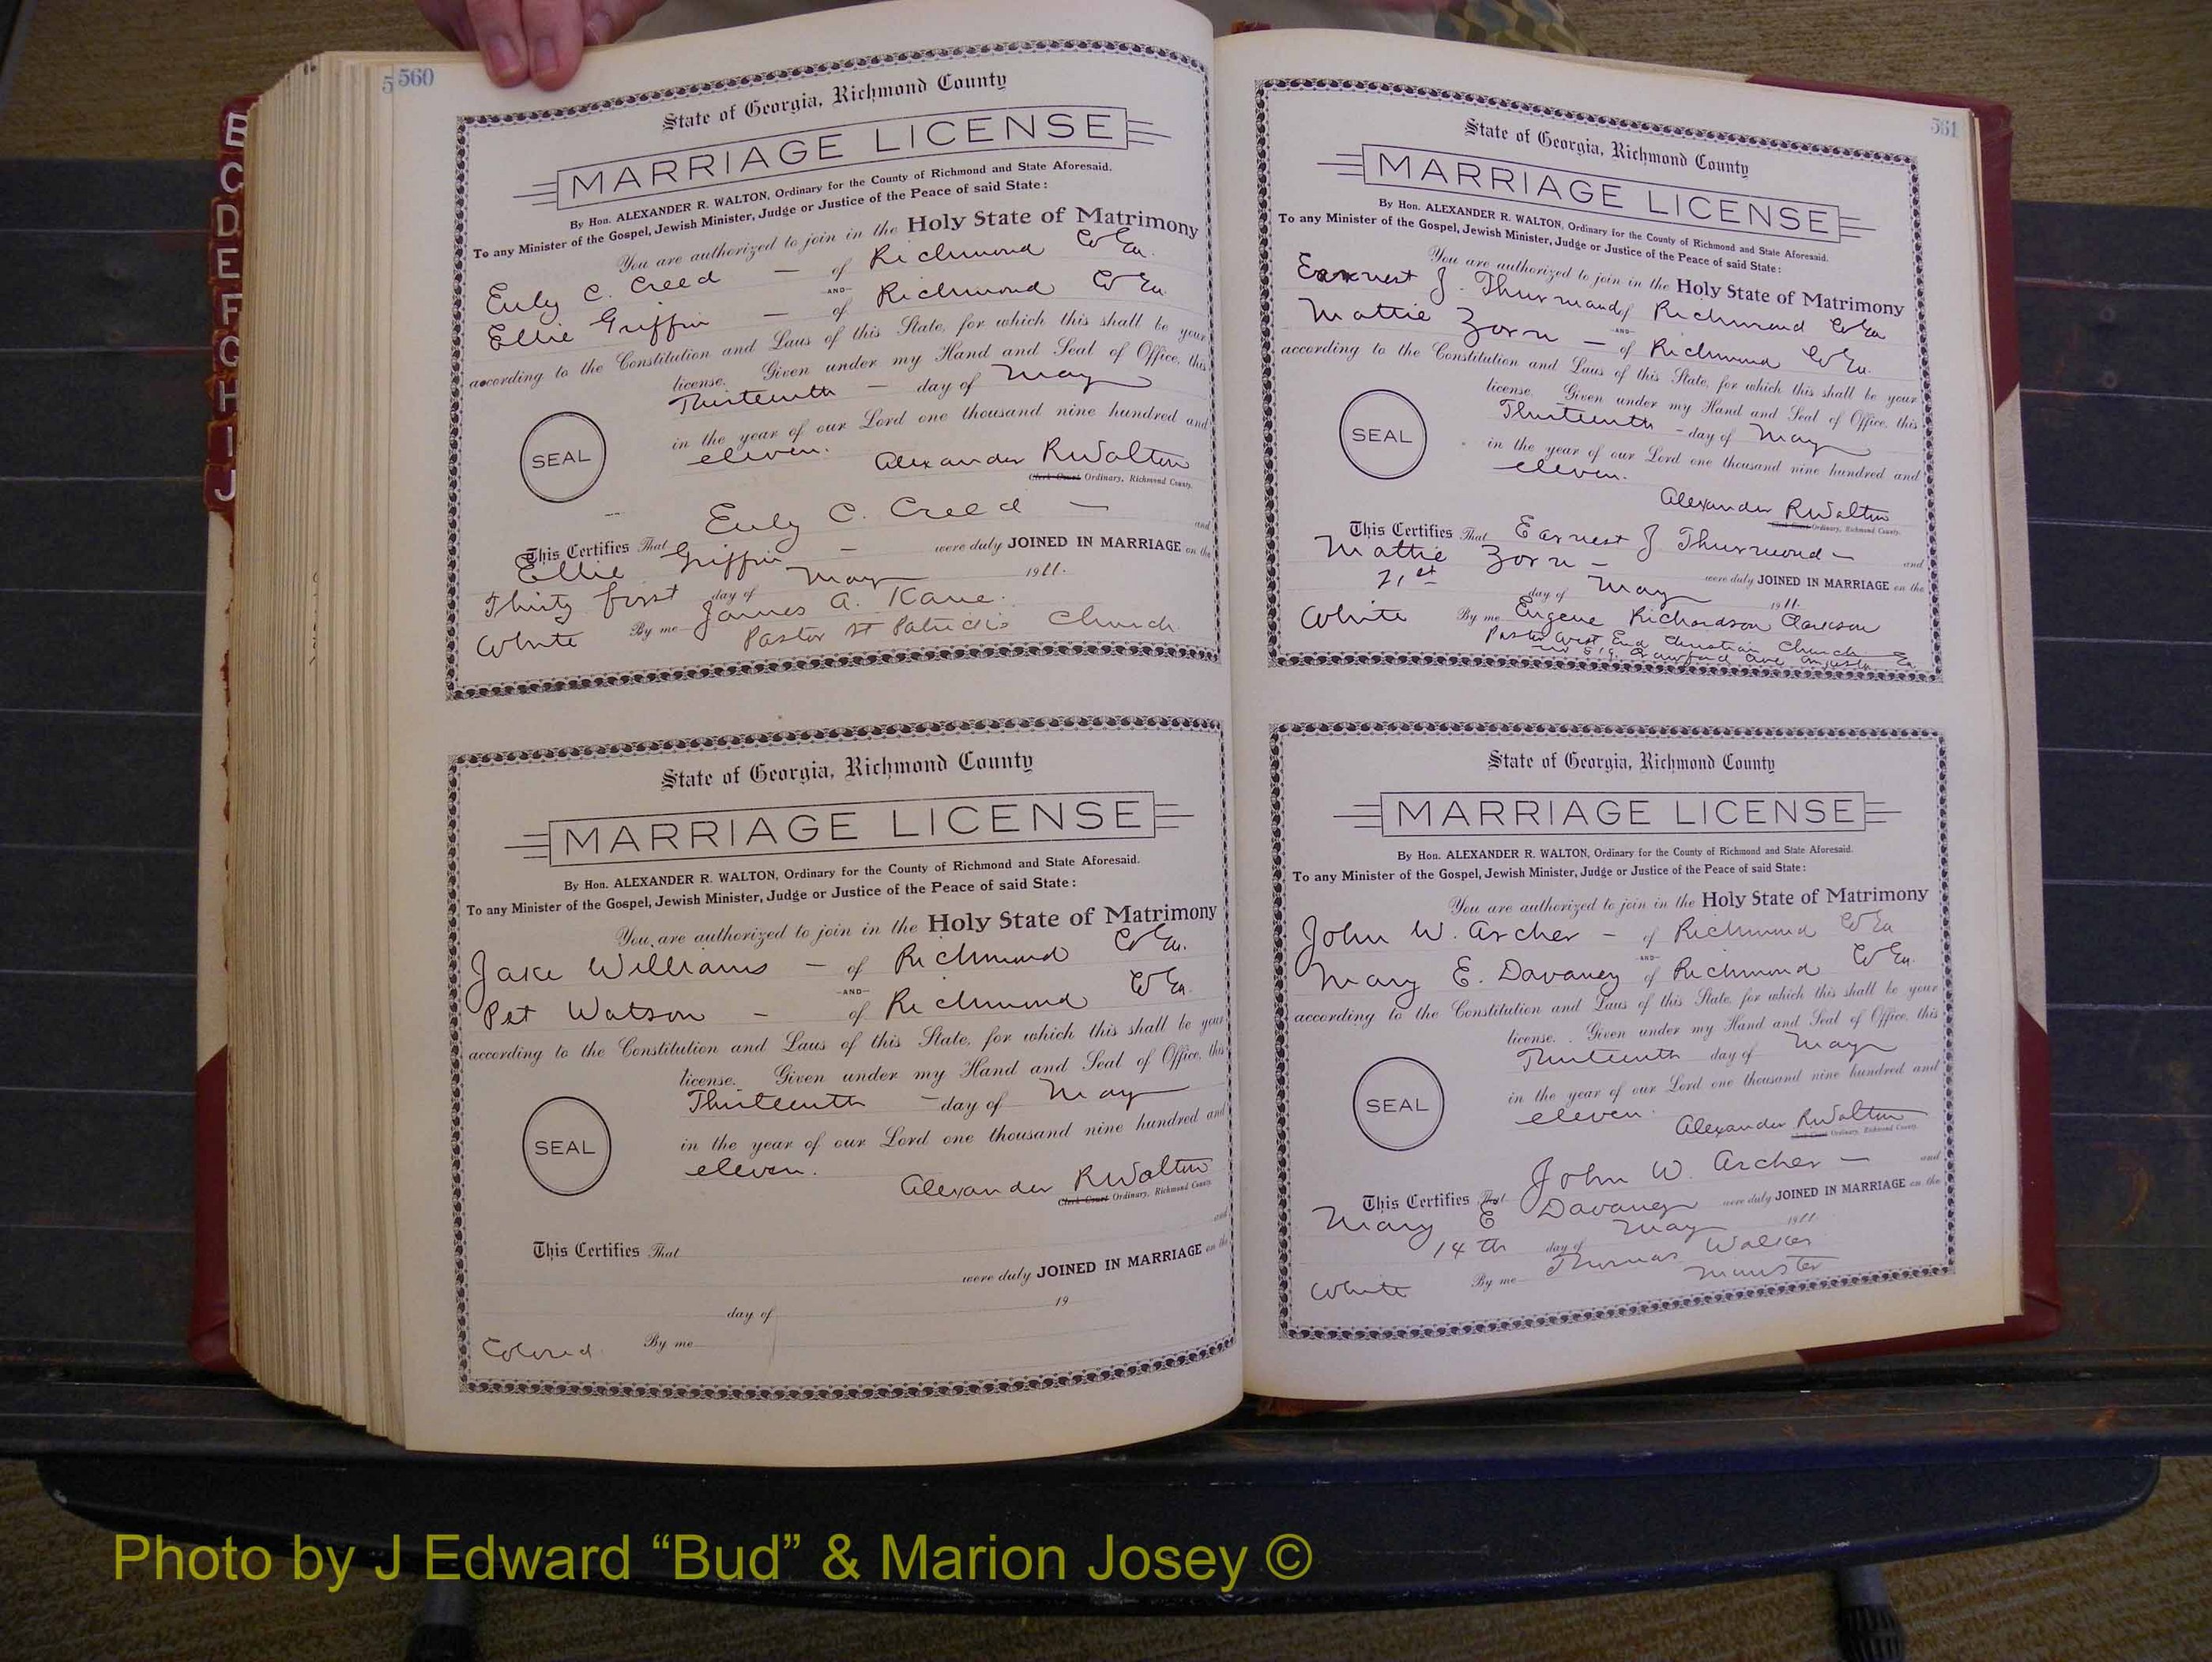 B
C
D
E
F
G
H
I
J
5 560
State of Georgia, Richmond County
MARRIAGE LICENSE
By Hon. ALEXANDER R. WALTON, Ordinary for the County of Richmond and State Aforesaid.
To any Minister of the Gospel, Jewish Minister, Judge or Justice of the Peace of said State:
You are authorized to join in the Holy State of Matrimony
Euly C. Creed — of Richmond Co Ga.
—AND—
Ellie Griffin — of Richmond Co Ga.
according to the Constitution and Laws of this State, for which this shall be your
license. Given under my Hand and Seal of Office, this
Thirteenth — day of May
in the year of our Lord one thousand nine hundred and
eleven.
SEAL
Alexander R Walton
Clerk Court Ordinary, Richmond County.
This Certifies That Euly C. Creed — and
Ellie Griffin — were duly JOINED IN MARRIAGE on the
Thirty first day of May 1911.
White By me James A. Kane.
Pastor St Patricks Church
State of Georgia, Richmond County
MARRIAGE LICENSE
By Hon. ALEXANDER R. WALTON, Ordinary for the County of Richmond and State Aforesaid.
To any Minister of the Gospel, Jewish Minister, Judge or Justice of the Peace of said State:
You are authorized to join in the Holy State of Matrimony
Jake Williams — of Richmond Co Ga.
—AND—
Pet Watson — of Richmond Co Ga.
according to the Constitution and Laws of this State, for which this shall be your
license. Given under my Hand and Seal of Office, this
Thirteenth — day of May
in the year of our Lord one thousand nine hundred and
eleven.
SEAL
Alexander R Walton
Clerk Court Ordinary, Richmond County.
and
This Certifies That
were duly JOINED IN MARRIAGE on the
day of 19
Colored By me
561
State of Georgia, Richmond County
MARRIAGE LICENSE
By Hon. ALEXANDER R. WALTON, Ordinary for the County of Richmond and State Aforesaid.
To any Minister of the Gospel, Jewish Minister, Judge or Justice of the Peace of said State:
You are authorized to join in the Holy State of Matrimony
Earnest J. Thurmond of Richmond Co Ga
—AND—
Mattie Zorn — of Richmond Co Ga.
according to the Constitution and Laws of this State, for which this shall be your
license. Given under my Hand and Seal of Office, this
Thirteenth — day of May
in the year of our Lord one thousand nine hundred and
eleven.
SEAL
Alexander R Walton
Clerk Court Ordinary, Richmond County.
This Certifies That Earnest J Thurmond — and
Mattie Zorn — were duly JOINED IN MARRIAGE on the
21st day of May 1911.
White By me Eugene Richardson Clarkson
Pastor West End Christian Church
519 Crawford Ave Augusta Ga.
State of Georgia, Richmond County
MARRIAGE LICENSE
By Hon. ALEXANDER R. WALTON, Ordinary for the County of Richmond and State Aforesaid.
To any Minister of the Gospel, Jewish Minister, Judge or Justice of the Peace of said State:
You are authorized to join in the Holy State of Matrimony
John W. Archer — of Richmond Co Ga
—AND—
Mary E. Davaney of Richmond Co Ga.
according to the Constitution and Laws of this State, for which this shall be your
license. Given under my Hand and Seal of Office, this
Thirteenth day of May
in the year of our Lord one thousand nine hundred and
eleven.
SEAL
Alexander R Walton
Clerk Court Ordinary, Richmond County.
This Certifies That John W. Archer — and
Mary E Davaney were duly JOINED IN MARRIAGE on the
14th day of May 1911
White By me Thomas Walker
Minister
Photo by J Edward “Bud” & Marion Josey ©